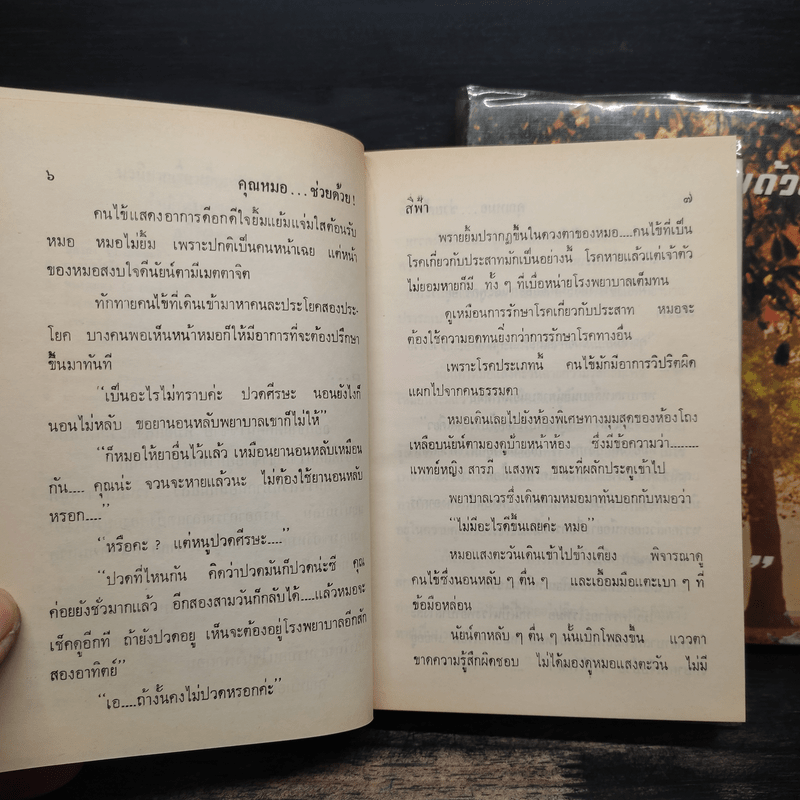 ๖
คุณหมอ...ช่วยด้วย!
คนไข้แสดงอาการดีอกดีใจยิ้มแย้มแจ่มใสต้อนรับ
หมอ หมอไม่ยิ้ม เพราะปกติเป็นคนหน้าเฉย แต่หน้า
ของหมอสงบใจดีนัยน์ตามีเมตตาจิต
ทักทายคนไข้ที่เดินเข้ามาหาคนละประโยคสองประ-
โยค บางคนพอเห็นหน้าหมอก็ให้มีอาการที่จะต้องปรึกษา
ขึ้นมาทันที
“เป็นอะไรไม่ทราบค่ะ ปวดศีรษะ นอนยังไงก็
นอนไม่หลับ ขอยานอนหลับพยาบาลเขาก็ไม่ให้”
“ก็หมอให้ยาอื่นไว้แล้ว เหมือนยานอนหลับเหมือน
กัน.... คุณน่ะ จวนจะหายแล้วนะ ไม่ต้องใช้ยานอนหลับ
หรอก....”
“หรือคะ ? แต่หนูปวดศีรษะ....”
“ปวดที่ไหนกัน คิดว่าปวดมันก็ปวดน่ะซี คุณ
ค่อยยังชั่วมากแล้ว อีกสองสามวันก็กลับได้....แล้วหมอจะ
เช็คดูอีกที ถ้ายังปวดอยู่ เห็นจะต้องอยู่โรงพยาบาลอีกสัก
สองอาทิตย์”
“เอ....ถ้างั้นคงไม่ปวดหรอกค่ะ”
สีฟ้า
๗
พรายยิ้มปรากฏขึ้นในดวงตาของหมอ....คนไข้ที่เป็น
โรคเกี่ยวกับประสาทมักเป็นอย่างนี้ โรคหายแล้วแต่เจ้าตัว
ไม่ยอมหายก็มี ทั้ง ๆ ที่เบื่อหน่ายโรงพยาบาลเต็มทน
ดูเหมือนการรักษาโรคเกี่ยวกับประสาท หมอจะ
ต้องใช้ความอดทนยิ่งกว่าการรักษาโรคทางอื่น
เพราะโรคประเภทนี้ คนไข้มักมีอาการวิปริตผิด
แผกไปจากคนธรรมดา
หมอเดินเลยไปยังห้องพิเศษทางมุมสุดของห้องโถง
เหลือบนัยน์ตามองดูป้ายหน้าห้อง ซึ่งมีข้อความว่า........
แพทย์หญิง สารภี แสงพร ขณะที่ผลักประตูเข้าไป
พยาบาลเวรซึ่งเดินตามหมอมาทันบอกกับหมอว่า
“ไม่มีอะไรดีขึ้นเลยค่ะ หมอ”
หมอแสงตะวันเดินเข้าไปข้างเตียง พิจารณาดู
คนไข้ซึ่งนอนหลับ ๆ ตื่น ๆ และเอื้อมมือแตะเบา ๆ ที่
ข้อมือหล่อน
นัยน์ตาหลับ ๆ ตื่น ๆ นั้นเบิกโพลงขึ้น แววตา
ขาดความรู้สึกผิดชอบ ไม่ได้มองดูหมอแสงตะวัน ไม่มี